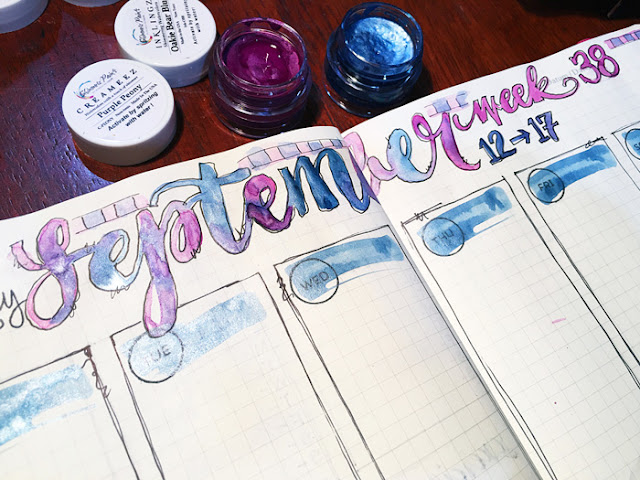 CREAMEEZ
Purple Peony
Activate by spritzing
with water!
INKLINGZ
Oakie Bear Blu
Activate by
with water
y September week 38
12→17
TUE
WED
THU
FRI